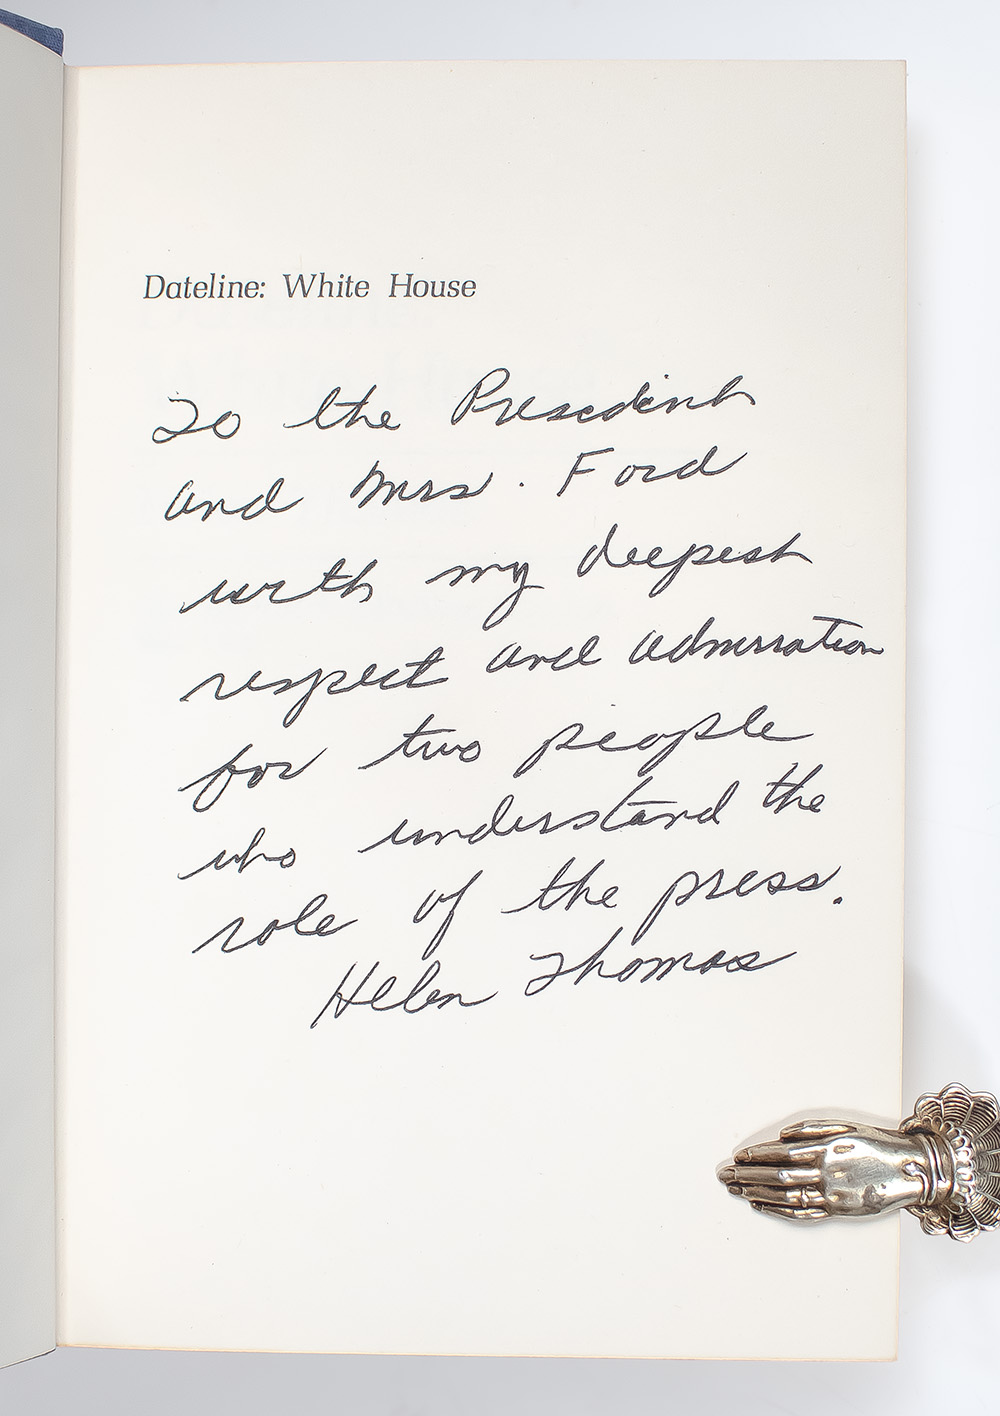 Dateline: White House
To the President
and Mrs. Ford
with my deepest
respect and admiration
for two people
who understand the
role of the press.
Helen Thomas